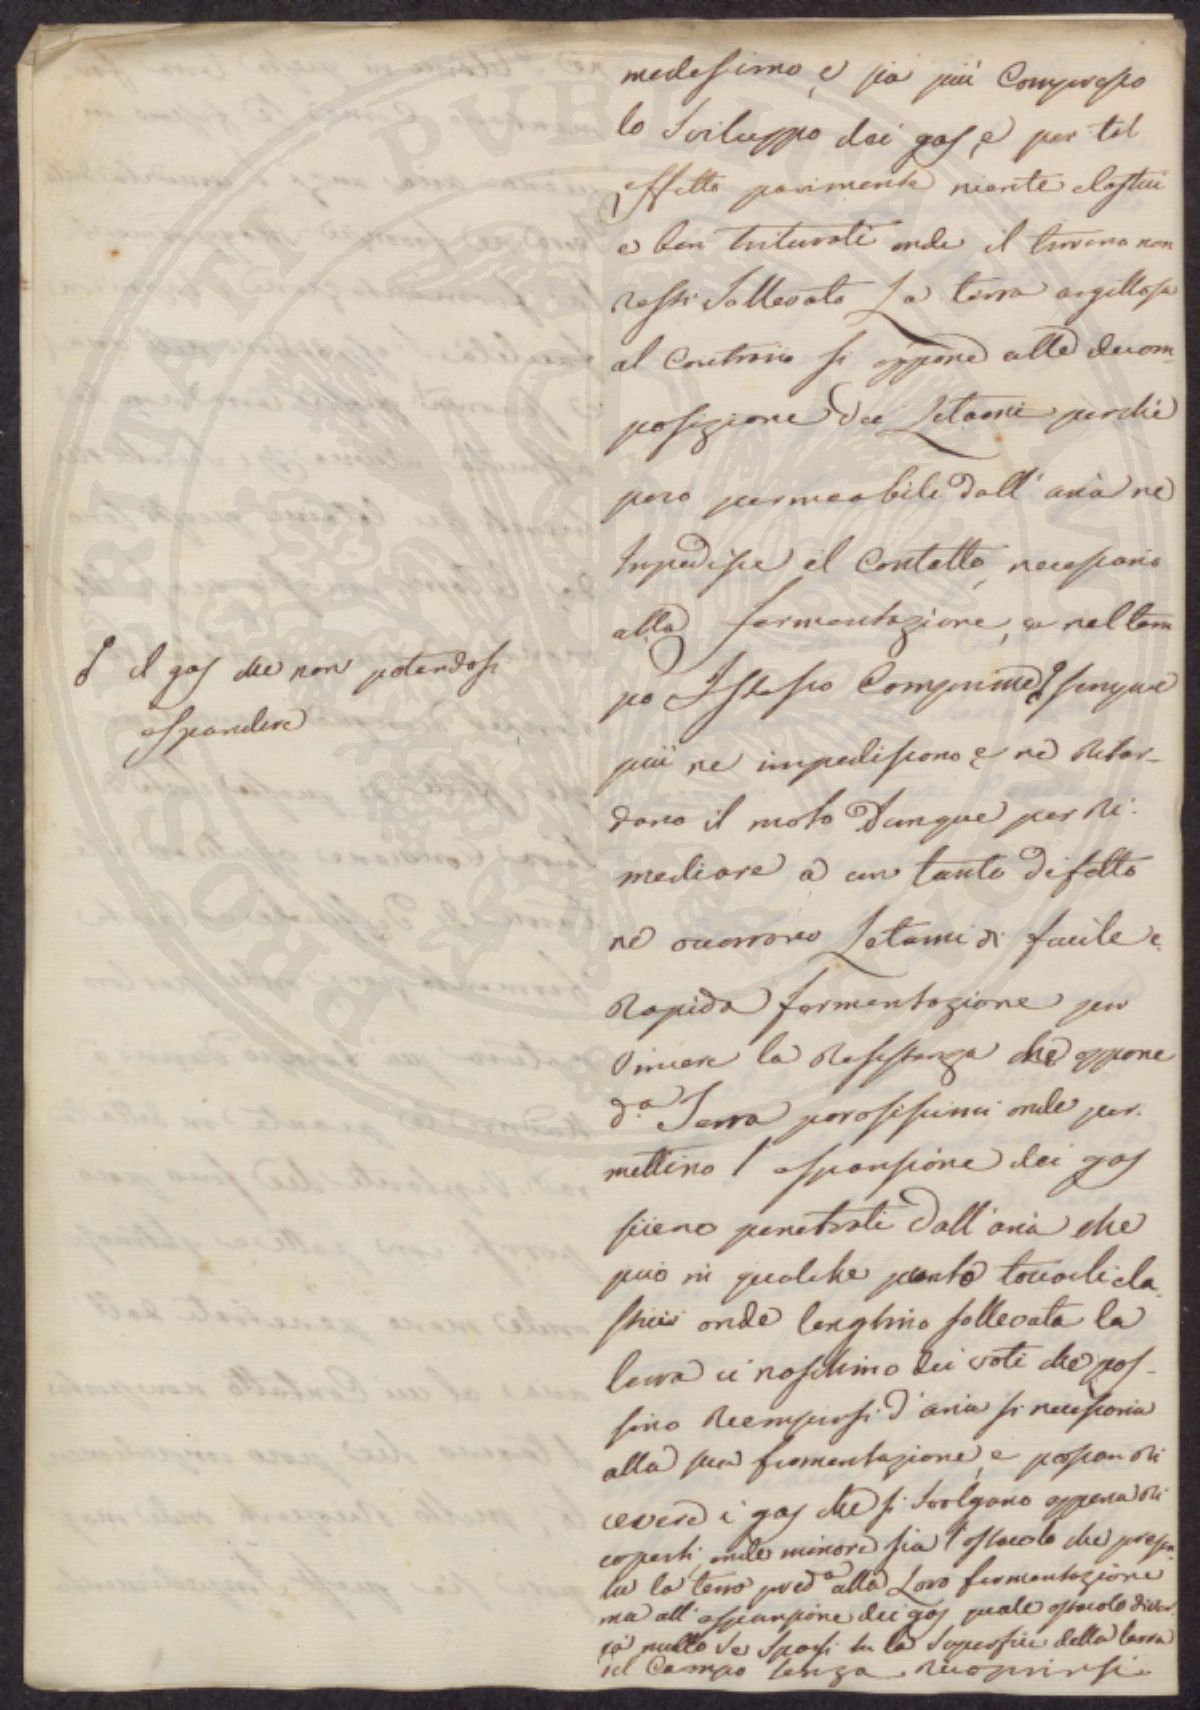 medesimo, e sia più Compresso
lo Sviluppo dei gas, e per tal
Effetto parimente niente elastici
e ben triturati onde il terreno non
Resti Sollevato La terra argillosa
al Contrario si oppone alla decom-
posizione dei Letami perchè
poco permeabile dall' aria ne
Impedisce il Contatto, necessario
alla fermentazione, e nel tem
po Istesso Comprime sempre
più ne impediscono, e ne Ritar-
dano il moto Dunque per Ri-
mediare a un tanto difetto
ne occorrono Letami di facile e
Rapida fermentazione per
Vincere la Resistenza che oppone
d.a Terra porosissimi onde per-
mettino l' espansione dei gas
sieno penetrati dall' aria che
può in qualche punto toccarli ela-
stici onde tenghino sollevata la
terra ci naschino dei voti che pos-
sino Riempirsi d' aria si necessaria
alla sua fermentazione, e possan Ri
cevere i gas che si Svolgano appena Ri
coperti, onde minore sia l' ostacolo che presen
ta la terra pred.a alla Loro fermentazione
ma all' espansione dei gas quale ostacolo diver
rà nullo Se Sparsi su la Superficie della terra
del Campo Senza Ricoprirsi.
il gas che non potendosi
espandere